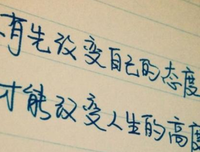 有先改变自己的态度
才能改变人生的高度